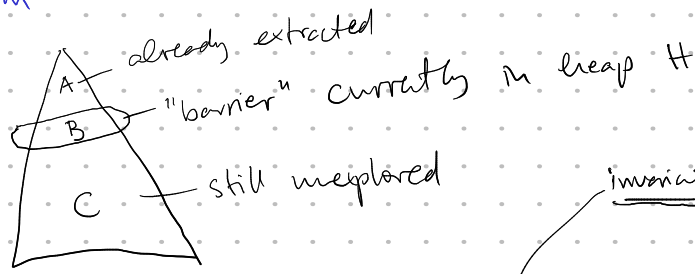 A already extracted
B "barrier" currently in heap H
C still unexplored